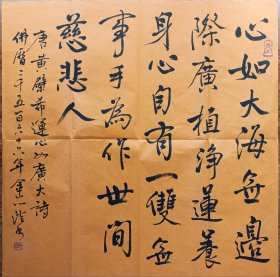 心如大海無邊
際廣植淨蓮養
身心自有一雙無
事手為作世間
慈悲人
唐黃檗希運心如廣大詩
佛曆二千五百六十六年